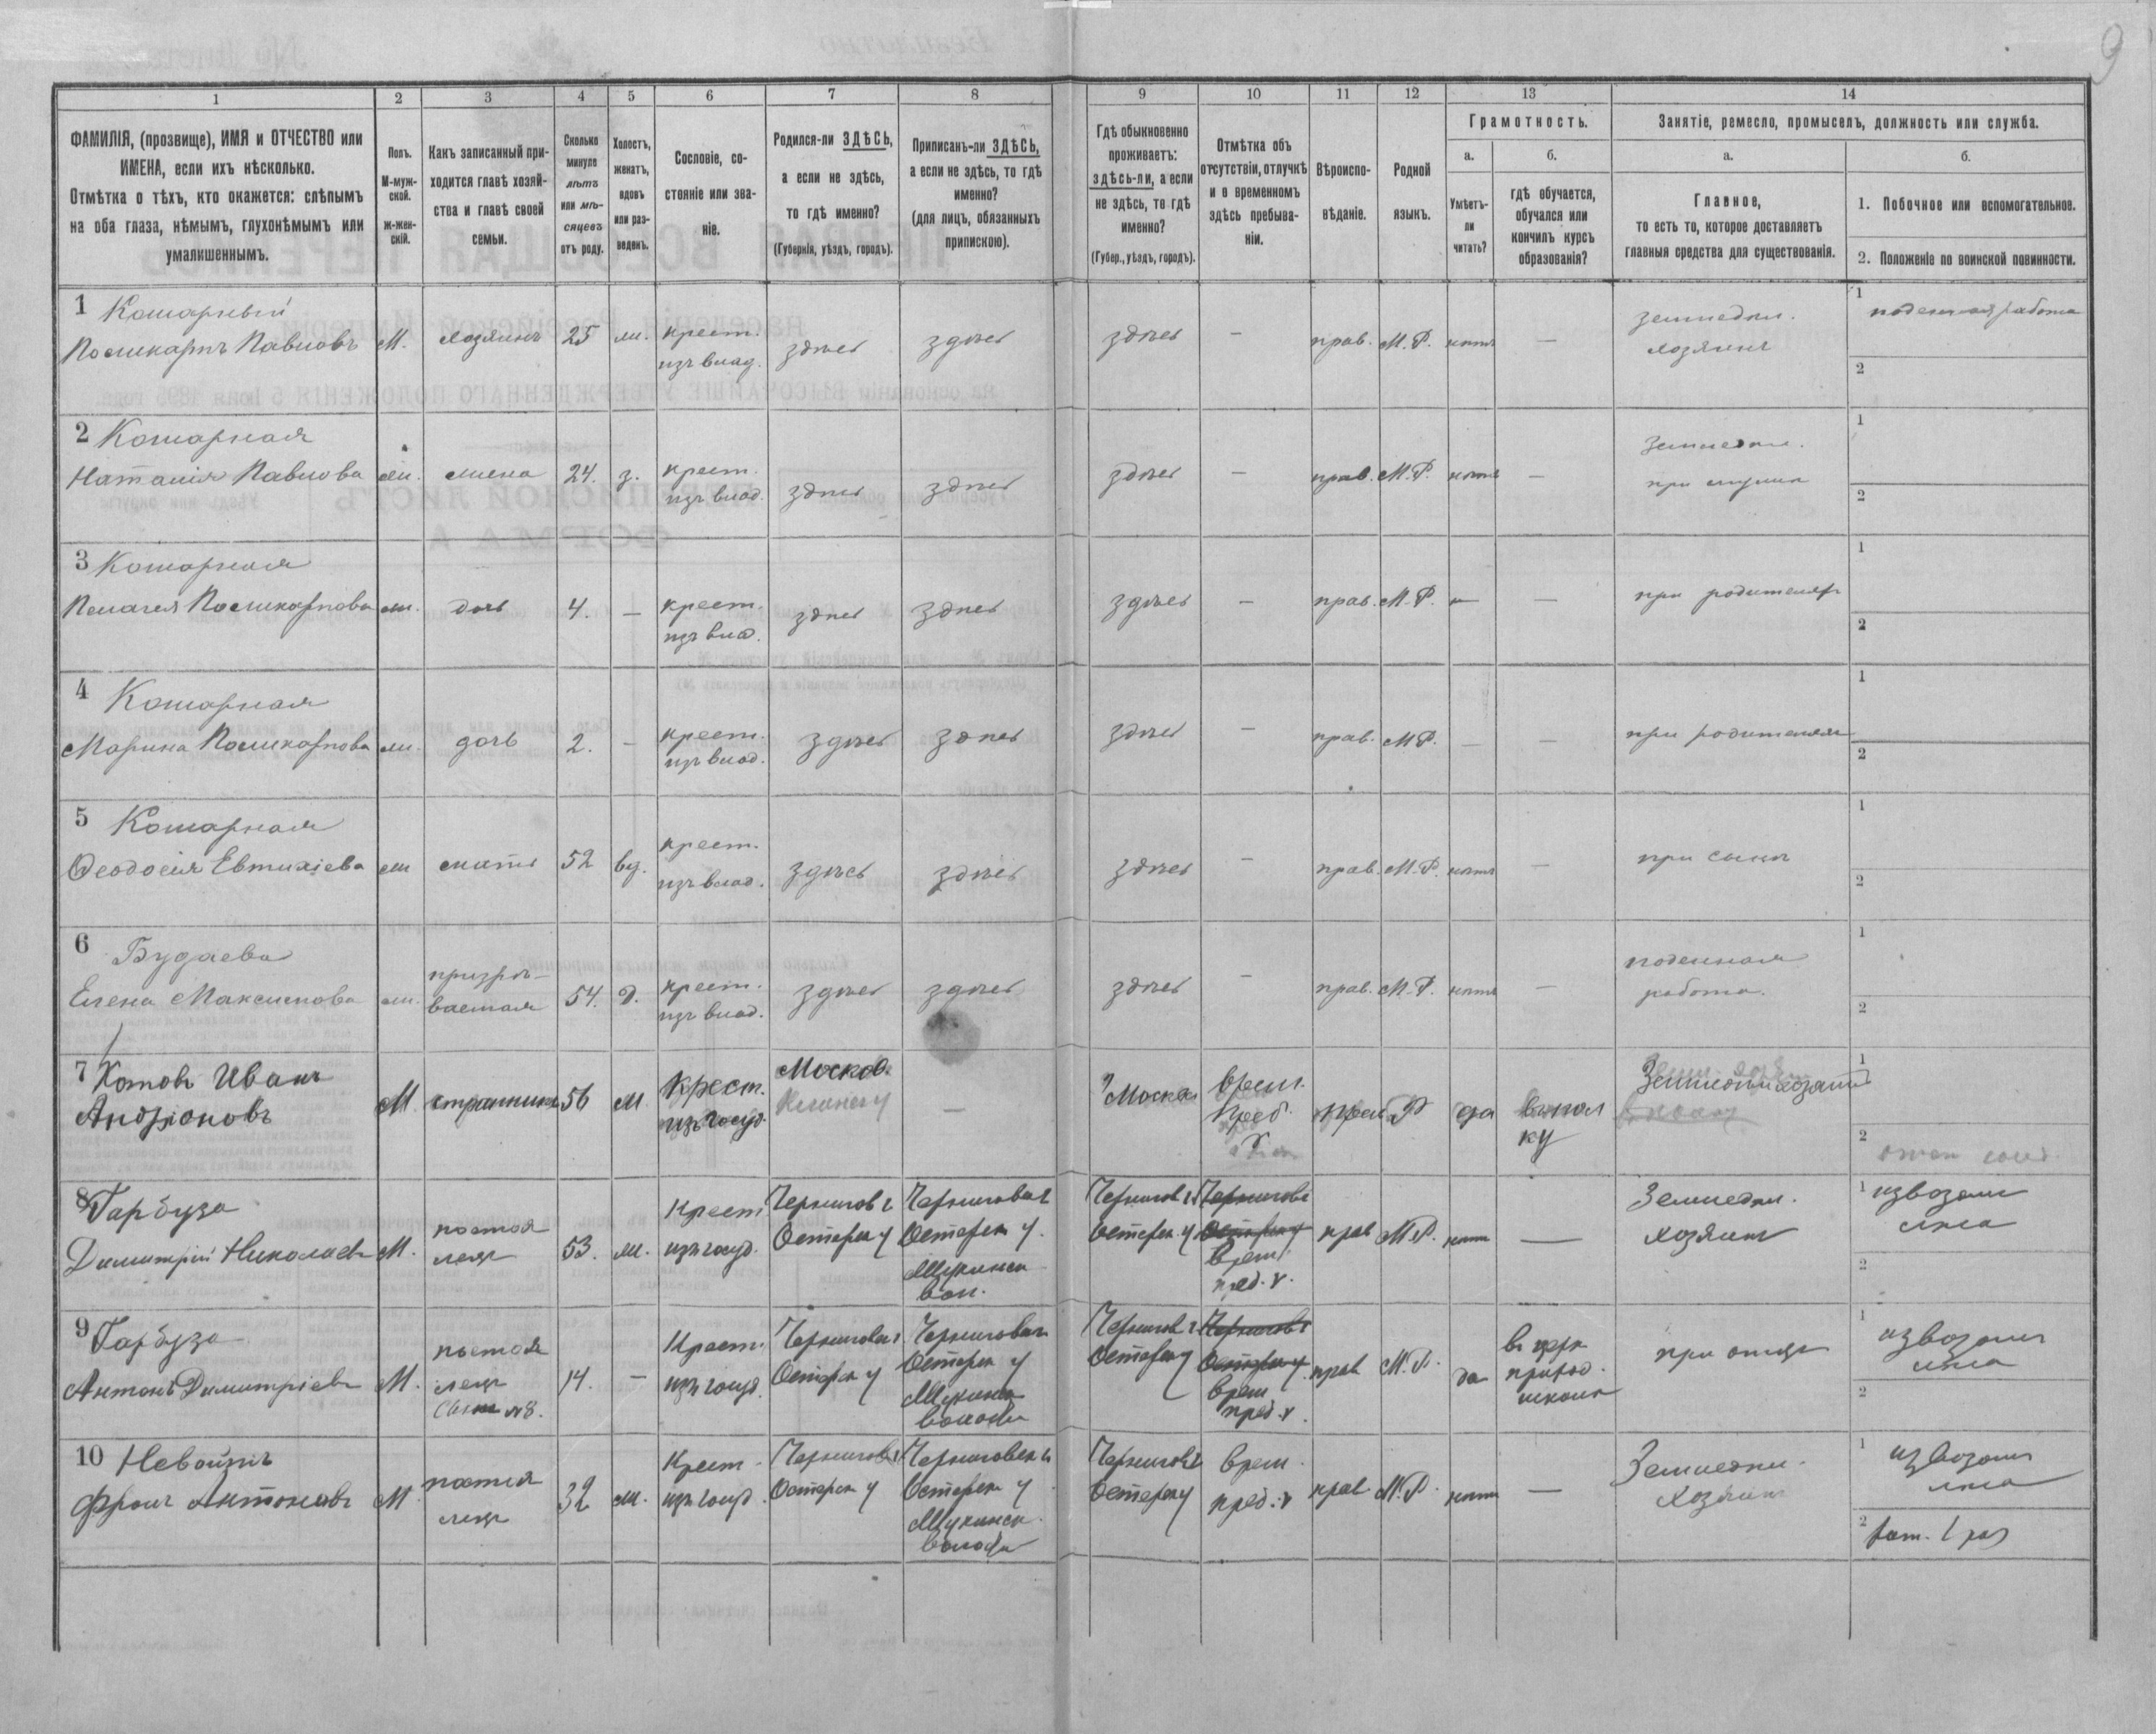 9
1 2 3 4 5 6 7 8 9 10 11 12 13 14
ФАМИЛІЯ, (прозвище), ИМЯ и ОТЧЕСТВО или
ИМЕНА, если ихъ нѣсколько.
Отмѣтка о тѣхъ, кто окажется: слѣпымъ
на оба глаза, нѣмымъ, глухонѣмымъ или
умалишеннымъ.
Полъ.
М-муж-
ской.
ж-жен-
скій.
Какъ записанный при-
ходится главѣ хозяй-
ства и главѣ своей
семьи.
Сколько
минуло
лѣтъ
или мѣ-
сяцевъ
отъ роду.
Холостъ,
женатъ,
вдовъ
или раз-
веденъ.
Сословіе, со-
стояніе или зва-
ніе.
Родился-ли ЗДѢСЬ,
а если не здѣсь,
то гдѣ именно?
(Губернія, уѣздъ, городъ).
Приписанъ-ли ЗДѢСЬ,
а если не здѣсь, то гдѣ
именно?
(для лицъ, обязанныхъ
припискою).
Гдѣ обыкновенно
проживаетъ:
здѣсь-ли, а если
не здѣсь, то гдѣ
именно?
(Губер., уѣздъ, городъ).
Отмѣтка объ
отсутствіи, отлучкѣ
и о временномъ
здѣсь пребыва-
ніи.
Вѣроиспо-
вѣданіе.
Родной
языкъ.
Грамотность.
а.
Умѣетъ-
ли
читать?
б.
гдѣ обучается,
обучался или
кончилъ курсъ
образованія?
Занятіе, ремесло, промыселъ, должность или служба.
а.
Главное,
то есть то, которое доставляетъ
главныя средства для существованія.
б.
1. Побочное или вспомогательное.
2. Положеніе по воинской повинности.
1 Кошарный
Поликарпъ Павловъ М. хозяинъ 25 ж. крест.
изъ влад. здѣсь здѣсь здѣсь — прав. М. Р. нѣтъ — земледѣл.
хозяинъ 1 поденная работа
2
2 Кошарная
Наталія Павлова ж. жена 24. з. крест.
изъ влад. здѣсь здѣсь здѣсь — прав. М. Р. нѣтъ — земледѣл.
при мужѣ 1
2
3 Кошарная
Пелагея Поликарпова ж. дочь 4. — крест.
изъ влад. здѣсь здѣсь здѣсь — прав. М. Р. — при родителяхъ 1
2
4 Кошарная
Марина Поликарпова ж. дочь 2. — крест.
изъ влад. здѣсь здѣсь здѣсь — прав. М. Р. — — при родителяхъ 1
2
5 Кошарная
Ѳеодосія Евтихіева ж мать 52 вд. крест.
изъ влад. здѣсь здѣсь здѣсь — прав. М. Р. нѣтъ — при сынѣ 1
2
6 Будаева
Елена Максимова ж. призрѣ-
ваемая 54. д. крест.
изъ влад. здѣсь здѣсь здѣсь — прав. М. Р. нѣтъ — поденная
работа. 1
2
7 Котовъ Иванъ
Андроновъ М странникъ 56 ж крест.
изъ госуд. Москов. — Москов врем.
преб. прав Р да 1
2
8 Гарбуза
Димитрій Николаевъ М. постоя
лецъ 53. ж. Крест
изъ госуд. Черниговг
Остерск у Черниговск г
Остерск у.
вол. Чернигов г
Остерск у Черниговг
Остерск у
врем.
преб. прав М. Р. нѣтъ — Земледѣл.
хозяинъ 1 извозомъ
лѣса
2
9 Гарбуза
Антонъ Димитріевъ М. постоя
лецъ
сынъ №8. 14. — Крест.
изъ госуд. Черниговск г
Остерск у Черниговск г
Остерск у
волости Чернигов г
Остерск у Черниговг
Остерск у
врем
преб. прав М. Р. да въ церк
приход.
школѣ при отцѣ 1 извозомъ
лѣса
2
10
Антоновъ М постоя
лецъ 32 ж. Крест
изъ госуд. Черниговг
Остерск у Черниговск г
Остерск у
волости Черниговг
Остерск у врем
преб. прав. М. Р. нѣтъ — Земледѣл.
хозяинъ 1 извозомъ
лѣса
2